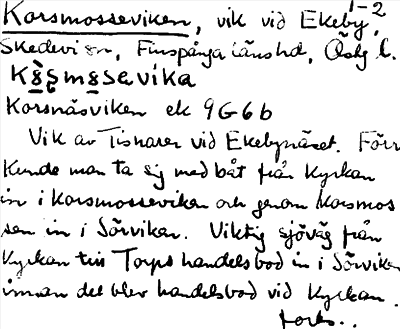 1-2
Korsmosseviken, vik vid Ekeby,
Skedevi sn, Finspånga länshd, Östg l.
Korsnäsviken ek 9G6b
Vik av Tisnaren vid Ekebynäset. Förr
kunde man ta sig med båt från kyrkan
in i Korsmosseviken och genom Korsmos
sen in i Sörviken. Viktig sjöväg från
kyrkan till Torps handelsbod in i Sörviken
innan det blev handelsbod vid kyrkan.
forts..